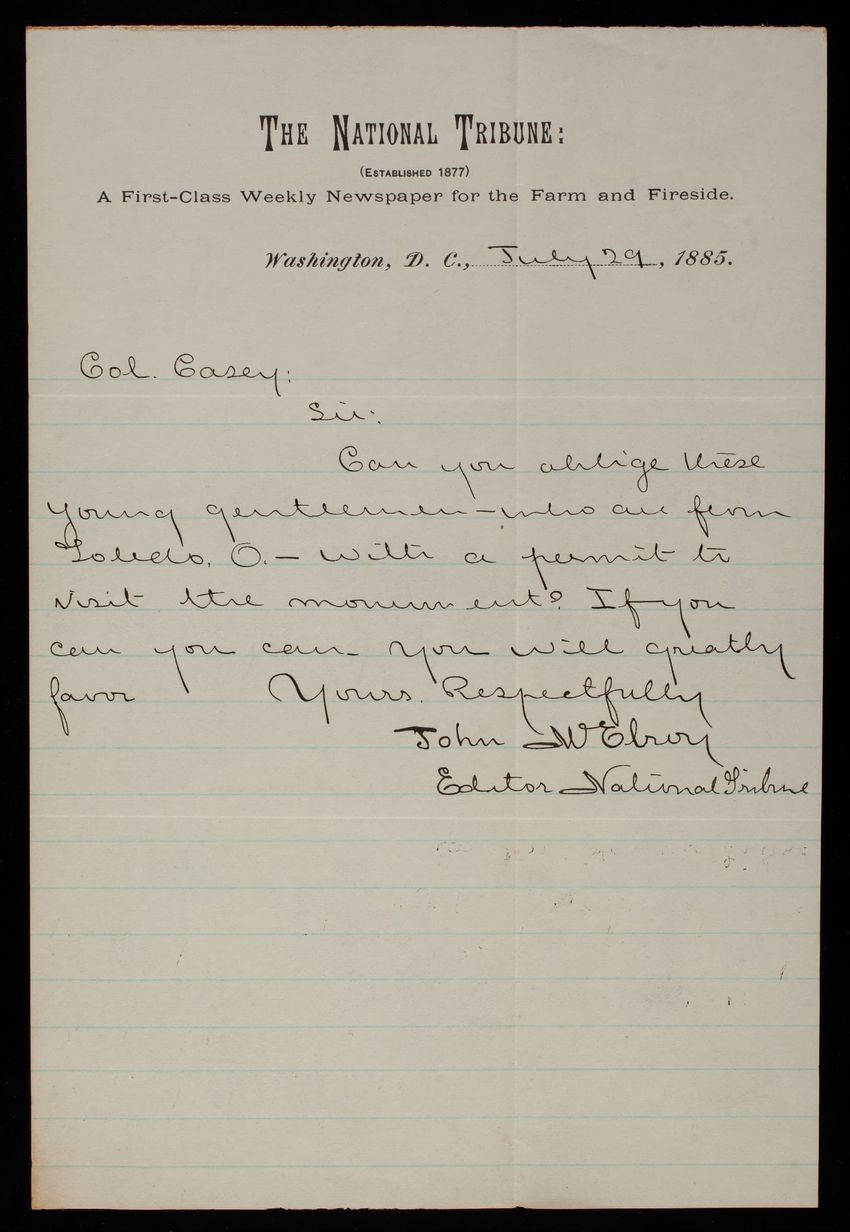 THE NATIONAL TRIBUNE:
(ESTABLISHED 1877)
A First-Class Weekly Newspaper for the Farm and Fireside.
Washington, D. C., July 29, 1885.
Col. Casey:
Sir:
Can you oblige these
young gentlemen – who are from
Toledo, O. – with a permit to
visit the monument? If you
can you can – you will greatly
favor Yours. Respectfully
John McElroy
Editor National Tribune